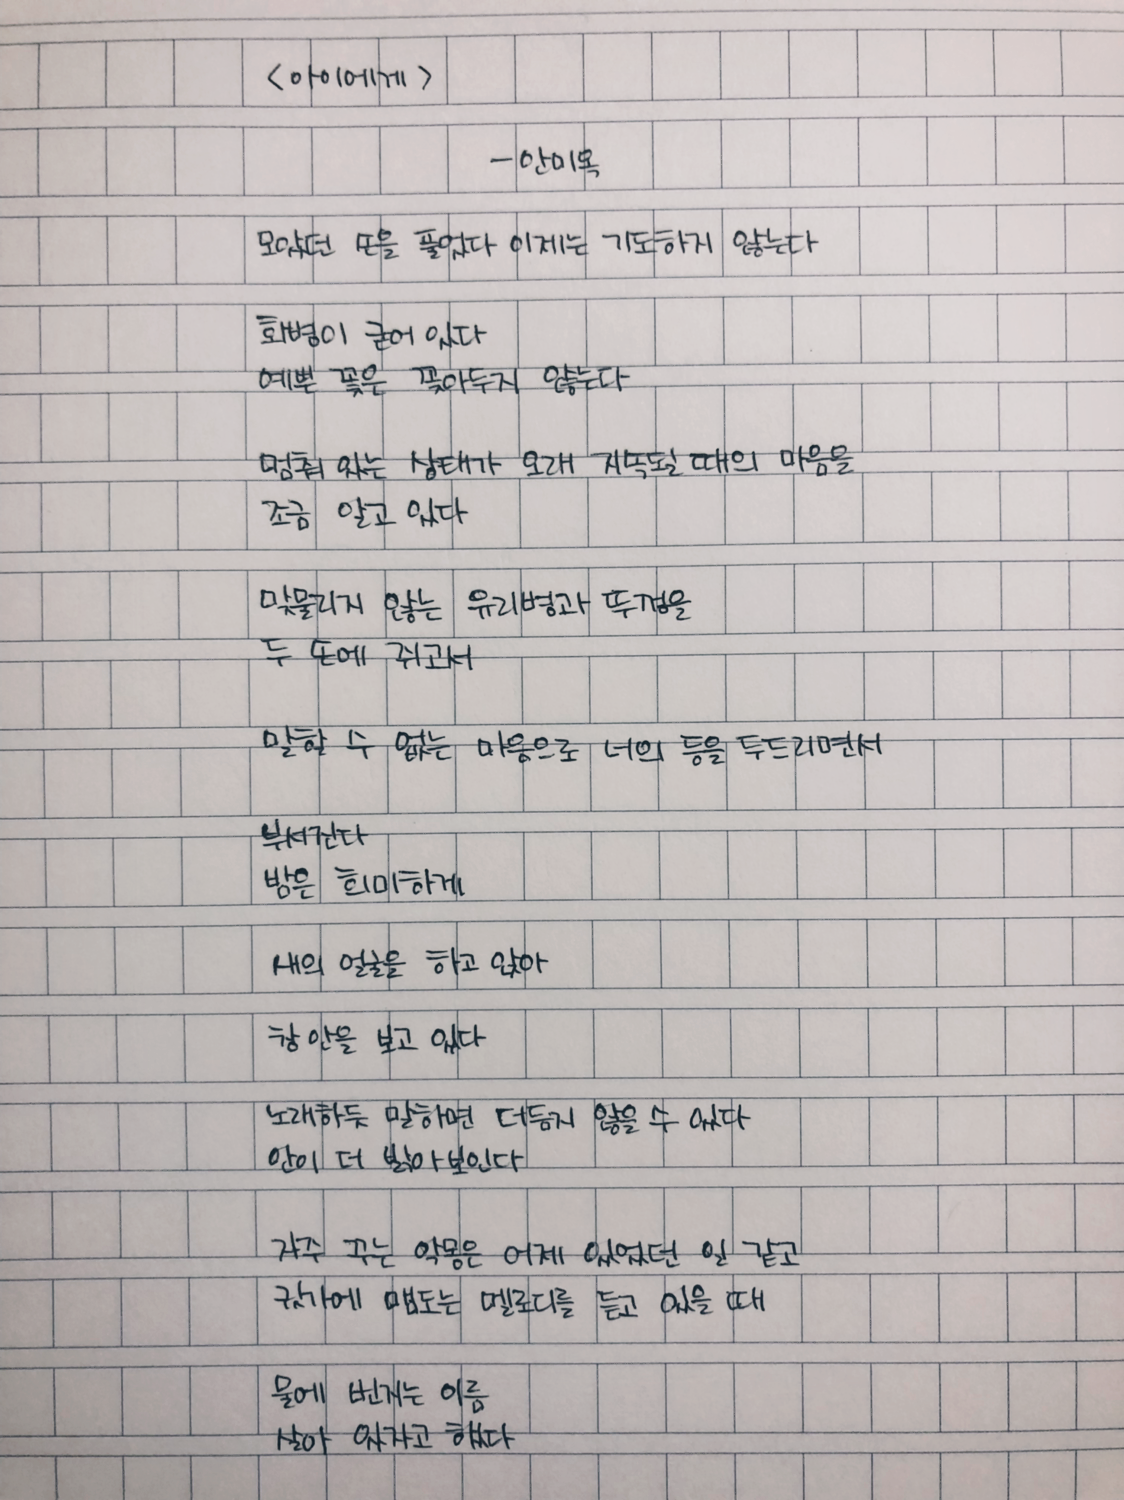 <아이에게>
-안미옥
모았던 손을 풀었다 이제는 기도하지 않는다
화병이 굳어 있다
예쁜 꽃은 꽂아두지 않는다
멈춰 있는 상태가 오래 지속될 때의 마음을
조금 알고 있다
맞물리지 않는 유리병과 뚜껑을
두 손에 쥐고서
말할 수 없는 마음으로 너의 등을 두드리면서
부서진다
밤은 희미하게
새의 얼굴을 하고 앉아
창 안을 보고 있다
노래하듯 말하면 더듬지 않을 수 있다
안이 더 밝아보인다
자주 꾸는 악몽은 어제 있었던 일 같고
귓가에 맴도는 멜로디를 듣고 있을 때
물에 번지는 이름
살아 있자고 했다